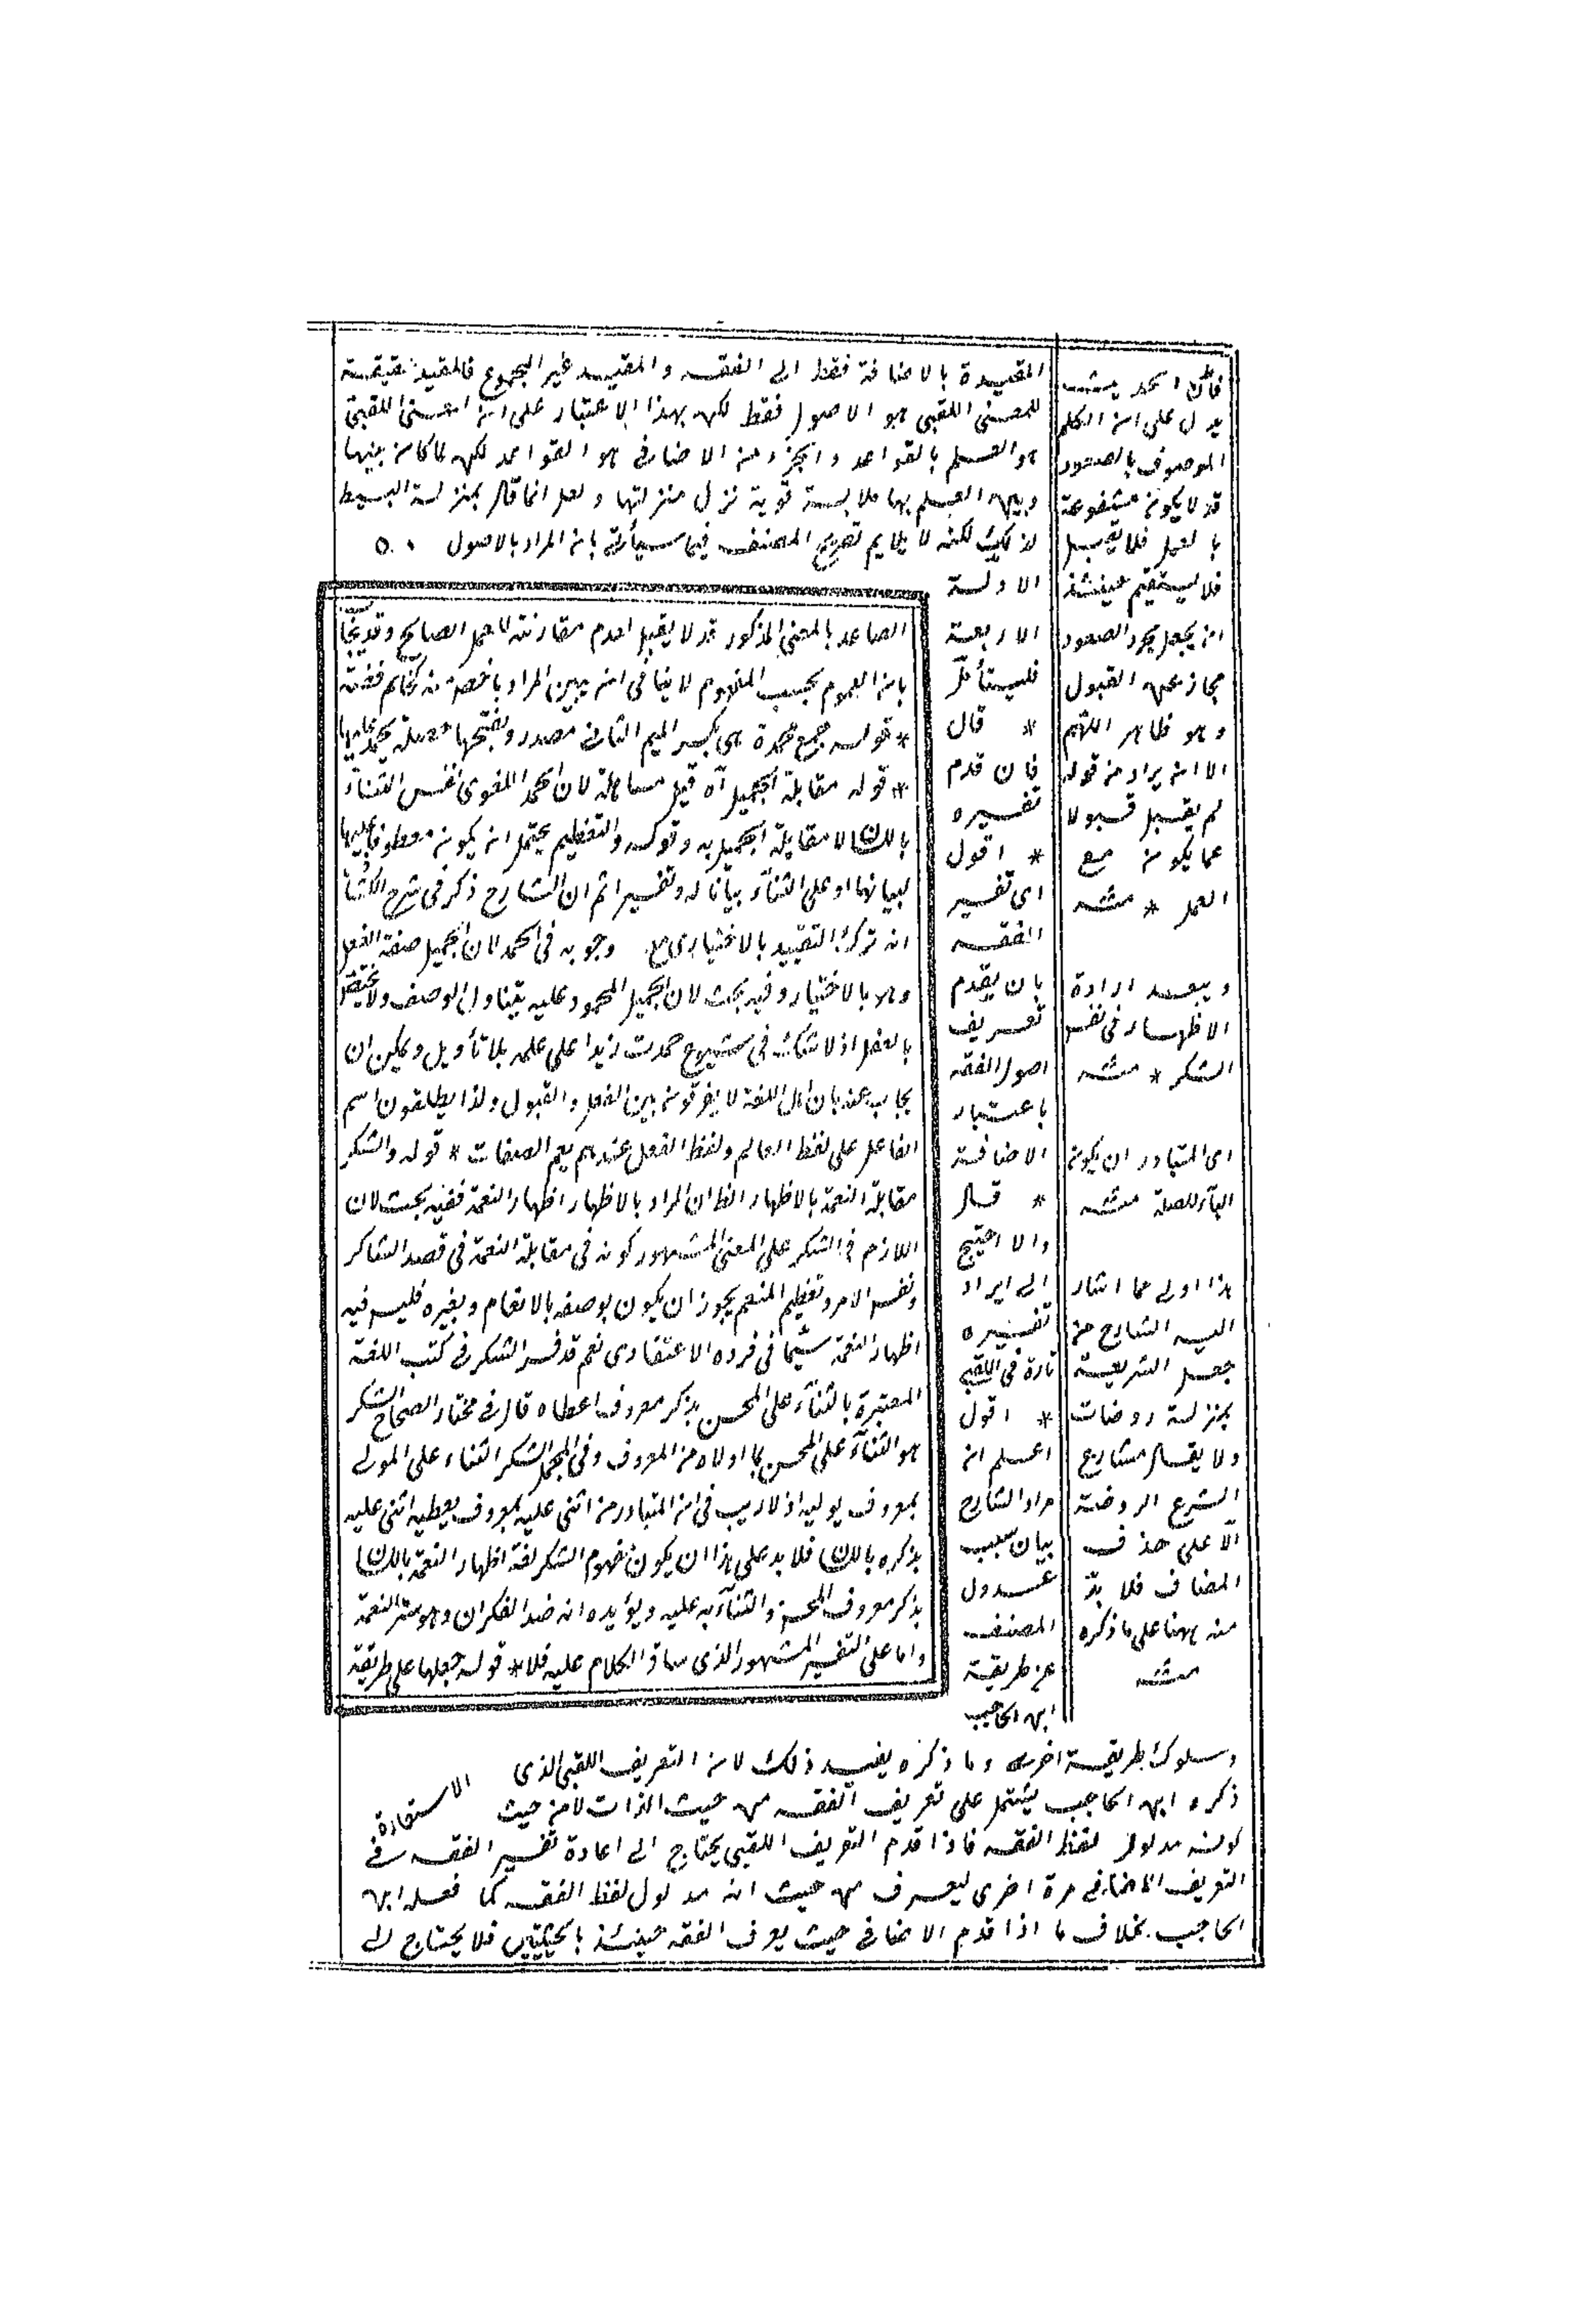 المقيدة بالاضافة فقط الى الفقه والمقيد غير المجموع فالمقيد حقيقة
للمعنى اللقبى هو الاصول فقط لكن بهذا الاعتبار على ان المعنى اللقبى
هو العلم بالقواعد والجزء من الاضافى هو القواعد لكن لما كان بينها
وبين العلم بها ملابسة قوية نزل منزلتها ولعله انما قال بمنزلة البسيط
لذلك لكنه لا يلايم تصريح المصنف فيما سيأتى بان المراد بالاصول
الادلة
الاربعة
فليتأمل
* قال
فان قدم
تفسيره
* اقول
اى تفسير
الفقه
بان يقدم
تعريف
اصول الفقه
باعتبار
الاضافة
* قال
والا احتيج
الى ايراد
تفسيره
تارة فى اللقبى
* اقول
اعلم ان
مراد الشارح
بيان سبب
عدول
المصنف
عن طريقة
ابن الحاجب
وسلوك طريقة اخرى وما ذكره يفيد ذلك لان التعريف اللقبى الذى
ذكره ابن الحاجب يشتمل على تعريف الفقه من حيث الذات لا من حيث
كونه مدلول لفظ الفقه فاذا قدم التعريف اللقبى يحتاج الى اعادة تفسير الفقه فى
التعريف الاضافى مرة اخرى ليعرف من حيث انه مدلول لفظ الفقه كما فعله ابن
الحاجب بخلاف ما اذا قدم الاضافى حيث يعرف الفقه حينئذ بالحيثيتين فلا يحتاج الى
الصاعد بالمعنى المذكور قد لا يقبل لعدم مقارنته للعمل الصالح وقد يجاب
بان العموم بحسب المفهوم لا ينافى ان يبين المراد باخص منه
* قوله جمع محمدة هى بكسر الميم الثانى مصدر وبفتحها خصلة يحمد عليها
* قوله مقابلة الجميل آه قيل مسامحة لان الحمد اللغوى نفس الثناء
باللسان لا مقابلة الجميل به وقوله والتعظيم يحتمل ان يكون معطوفا عليها
لبيانها او على الثناء بيانا له وتفسيرا ثم ان الشارح ذكر فى شرح الكشاف
انه ترك التقييد بالاختيارى مع وجوبه فى الحمد لان الجميل صفة الفعل
وهو بالاختيار وفيه بحث لان الجميل المحمود عليه يتناول الوصف ولا يختص
بالفعل اذ لا شك فى شيوع حمدت زيدا على علمه بلا تأويل ويمكن ان
يجاب عنه بان اهل اللغة لا يفرقون بين الفعل والقبول ولذا يطلقون اسم
الفاعل على لفظ العالم ولفظ الفعل عندهم يعم الصفات * قوله والشكر
مقابلة النعمة بالاظهار الظ ان المراد بالاظهار اظهار النعمة ففيه بحث لان
اللازم فى الشكر على المعنى المشهور كونه فى مقابلة النعمة فى قصد الشاكر
ونفس الامر وتعظيم المنعم يجوز ان يكون بوصفه بالانعام وبغيره فليس فيه
اظهار النعمة سيما فى فرده الاعتقادى نعم قد فسر الشكر فى كتب اللغة
المعتبرة بالثناء على المحسن بذكر معروف اعطاه قال فى مختار الصحاح الشكر
هو الثناء على المحسن بما اولاه من المعروف وفى المجمل الشكر الثناء على المولى
بمعروف يوليه اذ لا ريب فى ان المتبادر من اثنى عليه بمعروف يعطيه اثنى عليه
بذكره باللسان فلا بد على هذا ان يكون مفهوم الشكر لغة اظهار النعمة باللسان
بذكر معروف المحسن والثناء به عليه ويؤيده انه ضد الكفران وهو ستر النعمة
واما على التفسير المشهور الذى ساق الكلام عليه فلا * قوله جعلها على طريقة
الاستعارة
يدل على ان الكلم
الموصوف بالصعود
قد لا يكون مشفوعة
بالعمل فلا يقبل
فلا يستقيم حينئذ
ان يجعل مجرد الصعود
مجاز عن القبول
وهو ظاهر اللهم
الا ان يراد من قوله
لم يقبل قبولا
عما يكون مع
العمل * منه
ويبعد ارادة
الاظهار فى نفس
الشكر * منه
اى المتبادر ان يكون
الباء للصلة منه
هذا اولى مما اشار
اليه الشارح من
جعل الشريعة
بمنزلة روضات
ولا يقال مشارع
الشرع الروضة
الا على حذف
المضاف فلا بد
منه ههنا على ما ذكره
منه